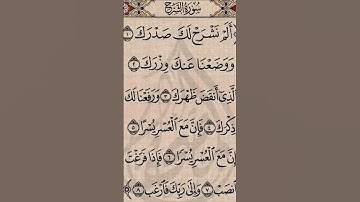 سُورَةُ الشَّرْحِ
أَلَمْ نَشْرَحْ لَكَ صَدْرَكَ ١
وَوَضَعْنَا عَنكَ وِزْرَكَ ٢
الَّذِي أَنقَضَ ظَهْرَكَ ٣ وَرَفَعْنَا لَكَ
ذِكْرَكَ ٤ فَإِنَّ مَعَ الْعُسْرِ يُسْرًا ٥
إِنَّ مَعَ الْعُسْرِ يُسْرًا ٦ فَإِذَا فَرَغْتَ
فَانصَبْ ٧ وَإِلَىٰ رَبِّكَ فَارْغَب ٨